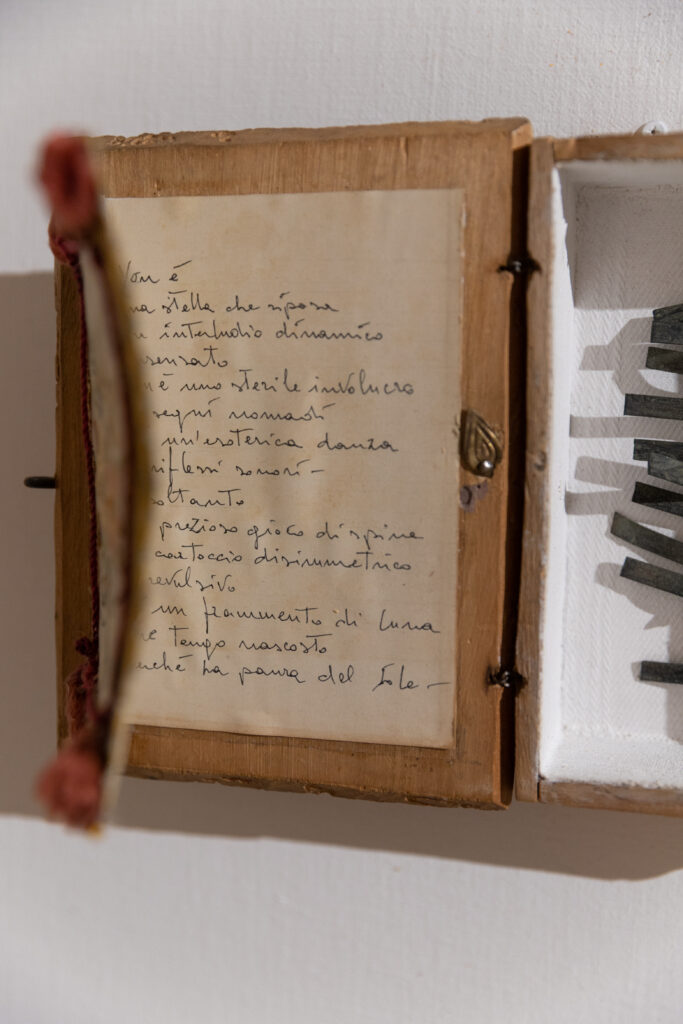 Non è
na stella che riposa
interludio dinamico
nsensato
n è uno sterile involucro
segni nomadi
un'esoterica danza
riflessi sonori –
oltanto
prezioso gioco di spine
cartoccio disimmetrico
revulsivo
un frammento di luna
he tengo nascosto
nché ha paura del Sole –